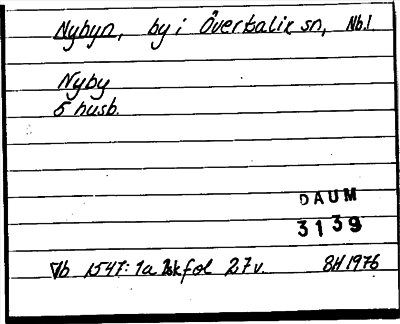 Nybyn, by i Överkalix sn, Nb.l
Nyby
5 husb.
DAUM
3139
Vb 1547: 1a fol 27v. BH 1976